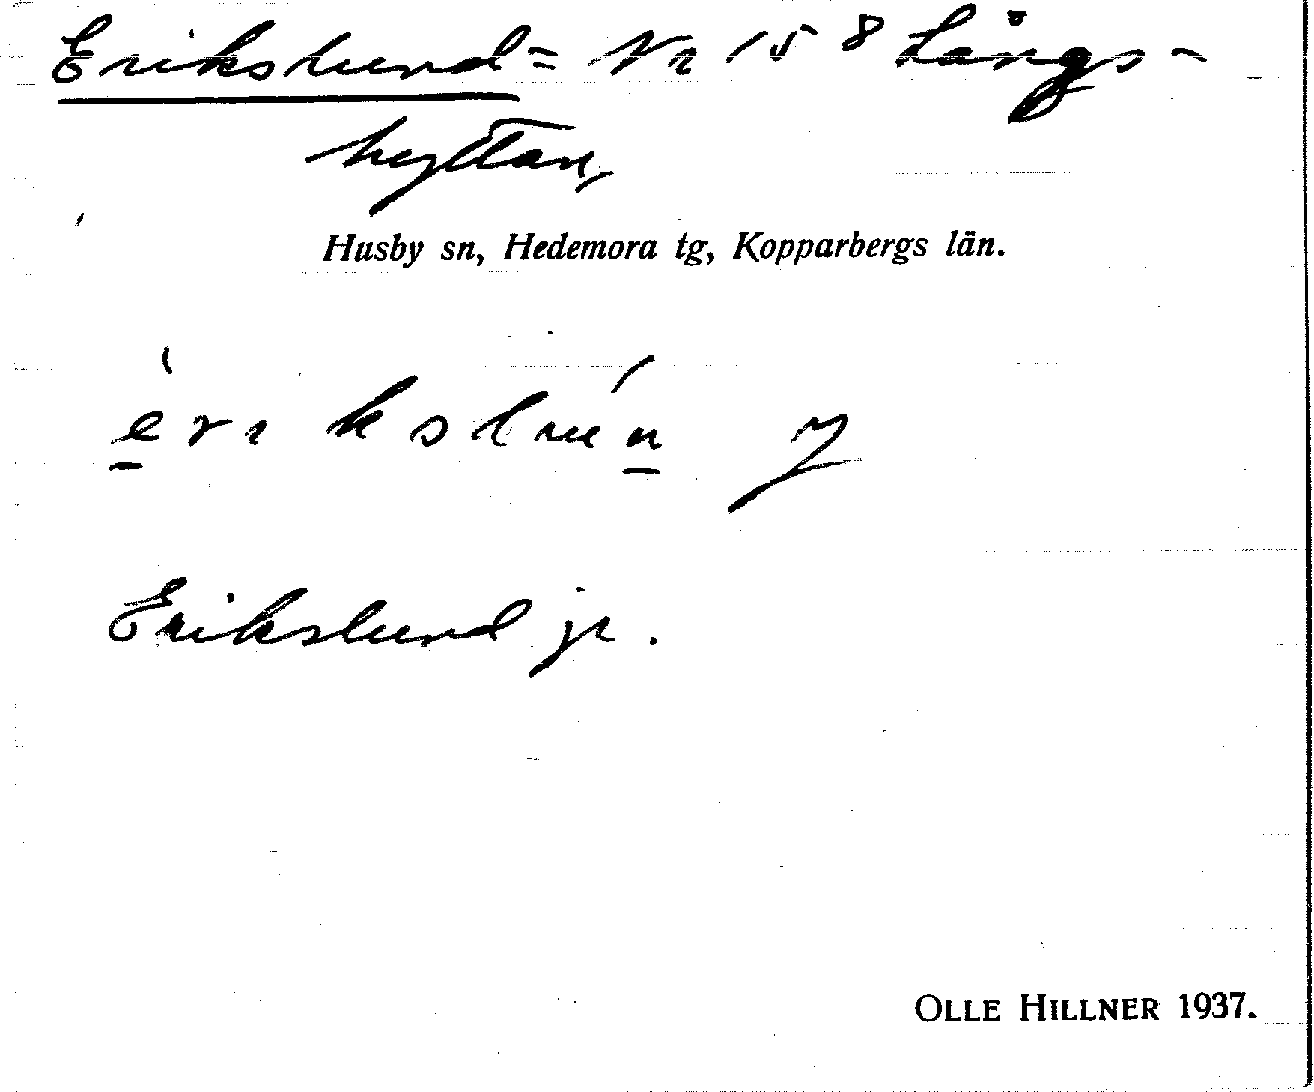 Erikslund = Nr 158 Långs-
hyttan,
Husby sn, Hedemora tg, Kopparbergs län.
Erikslund jr.
OLLE HILLNER 1937.